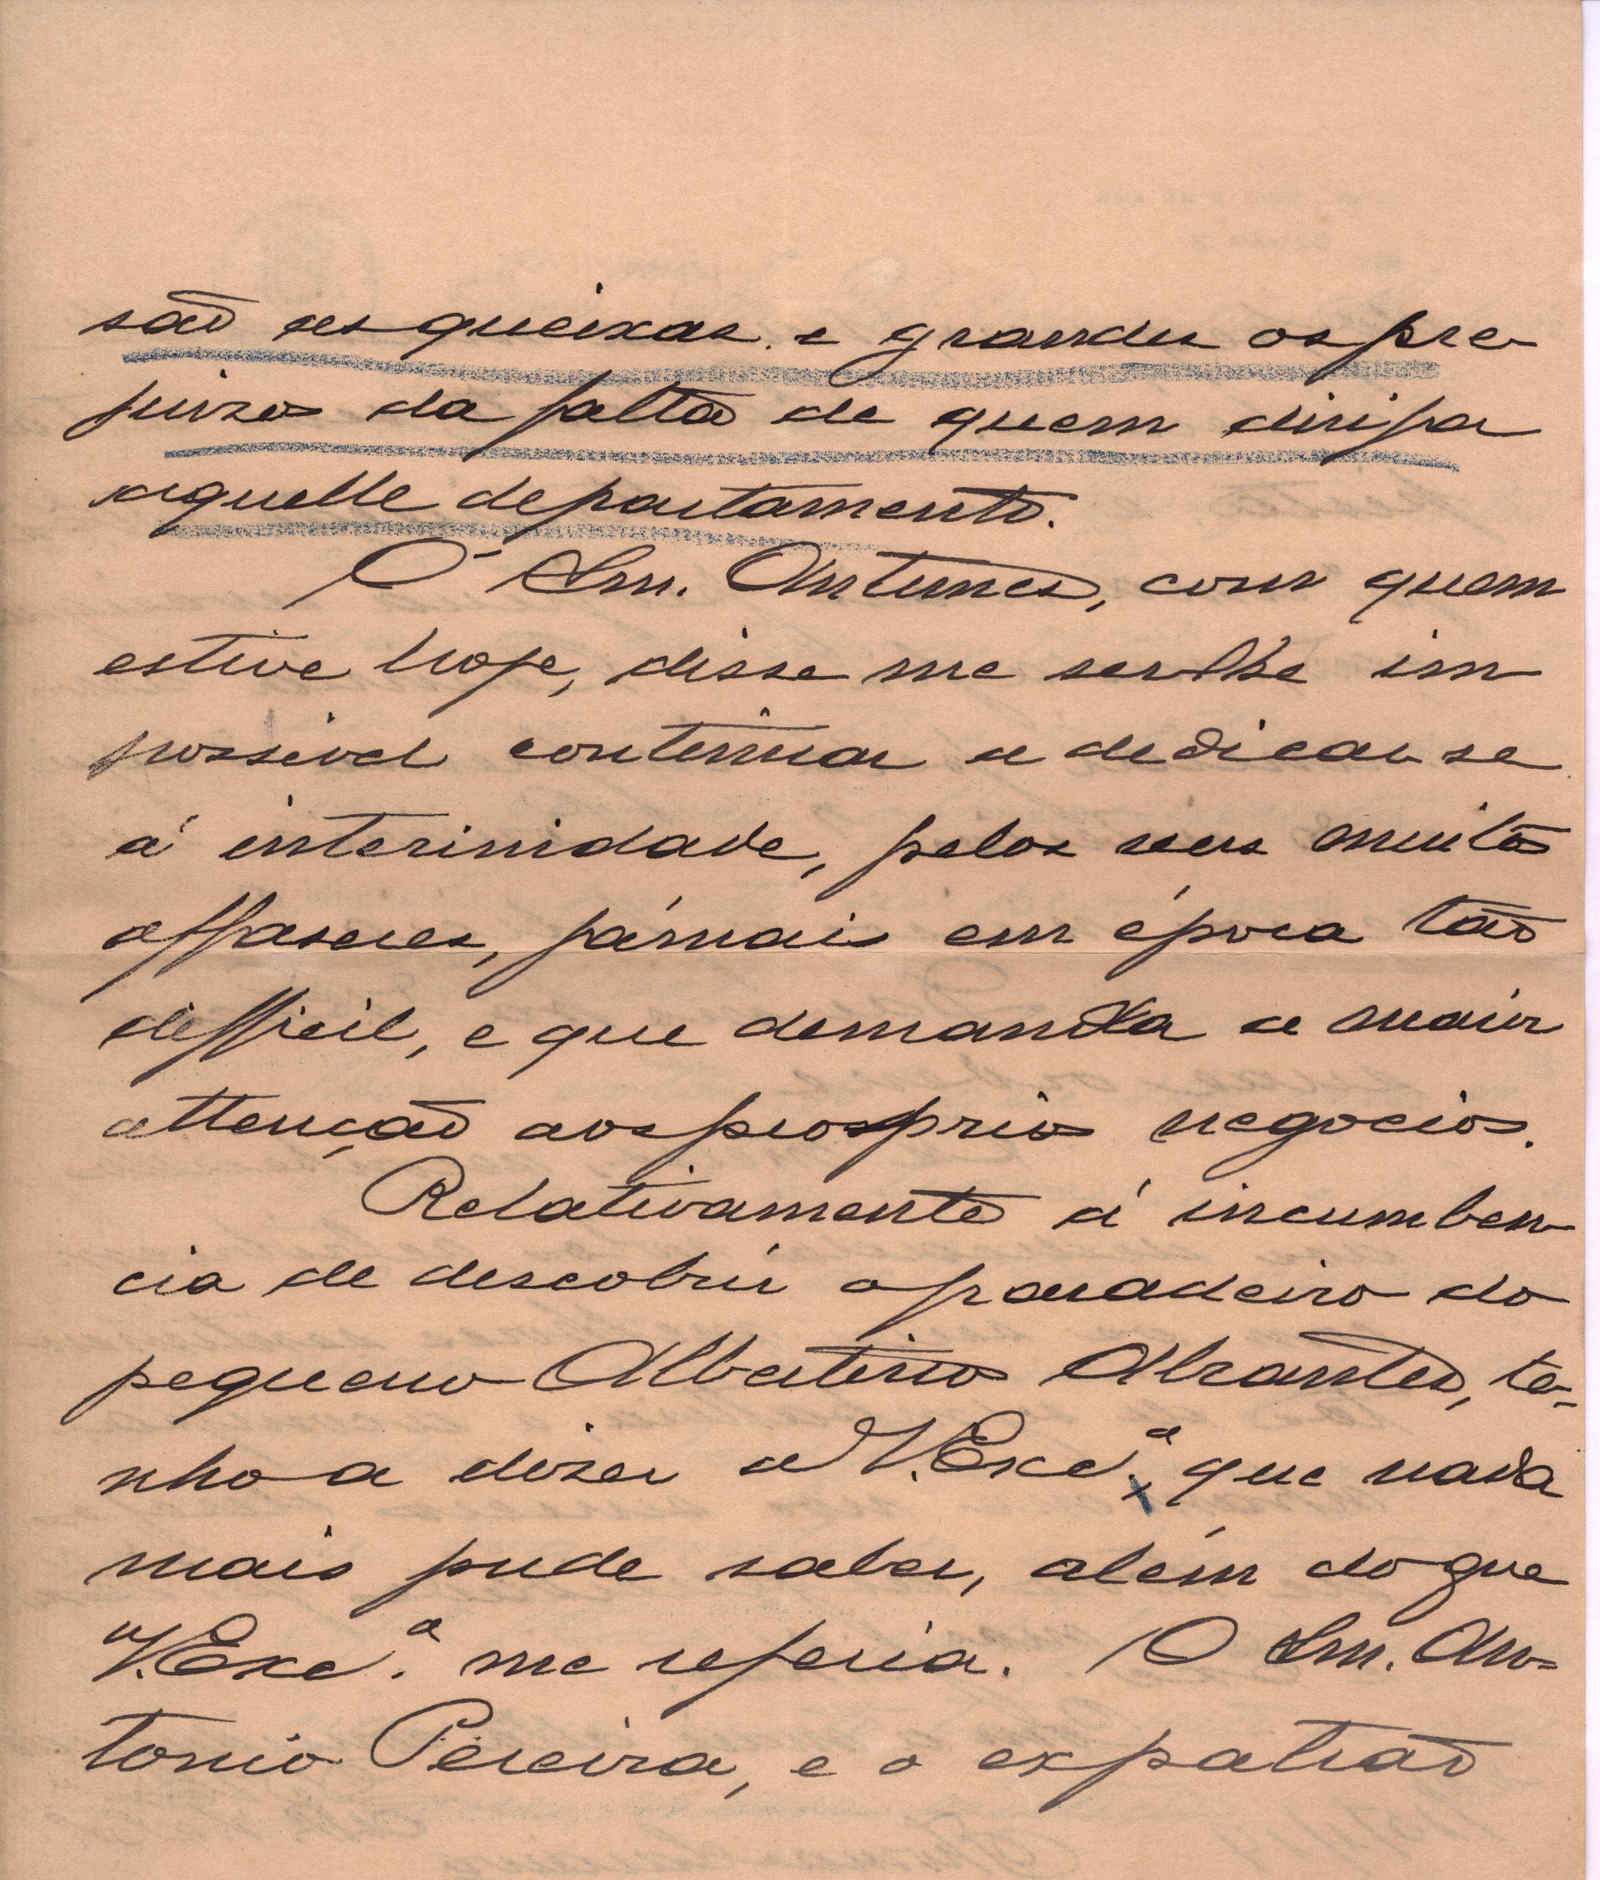 são as queixas e grandes os pre-
juizos da falta de quem dirija
aquelle departamento.
O Snr. Antunes, com quem
estive hoje, disse me ser-lhe im
possivel continuar a dedicar-se
á interinidade, pelos seus muitos
affaseres, jámais em época tão
difficil, e que demanda a maior
attenção aos proprios negocios.
Relativamente á incumben-
cia de descobrir o paradeiro do
pequeno Albertino Abrantes, te-
nho a dizer a V. Excª. que nada
mais pude saber, além do que
V. Excª. me referia. O Snr. An-
tonio Pereira, e o expatrão